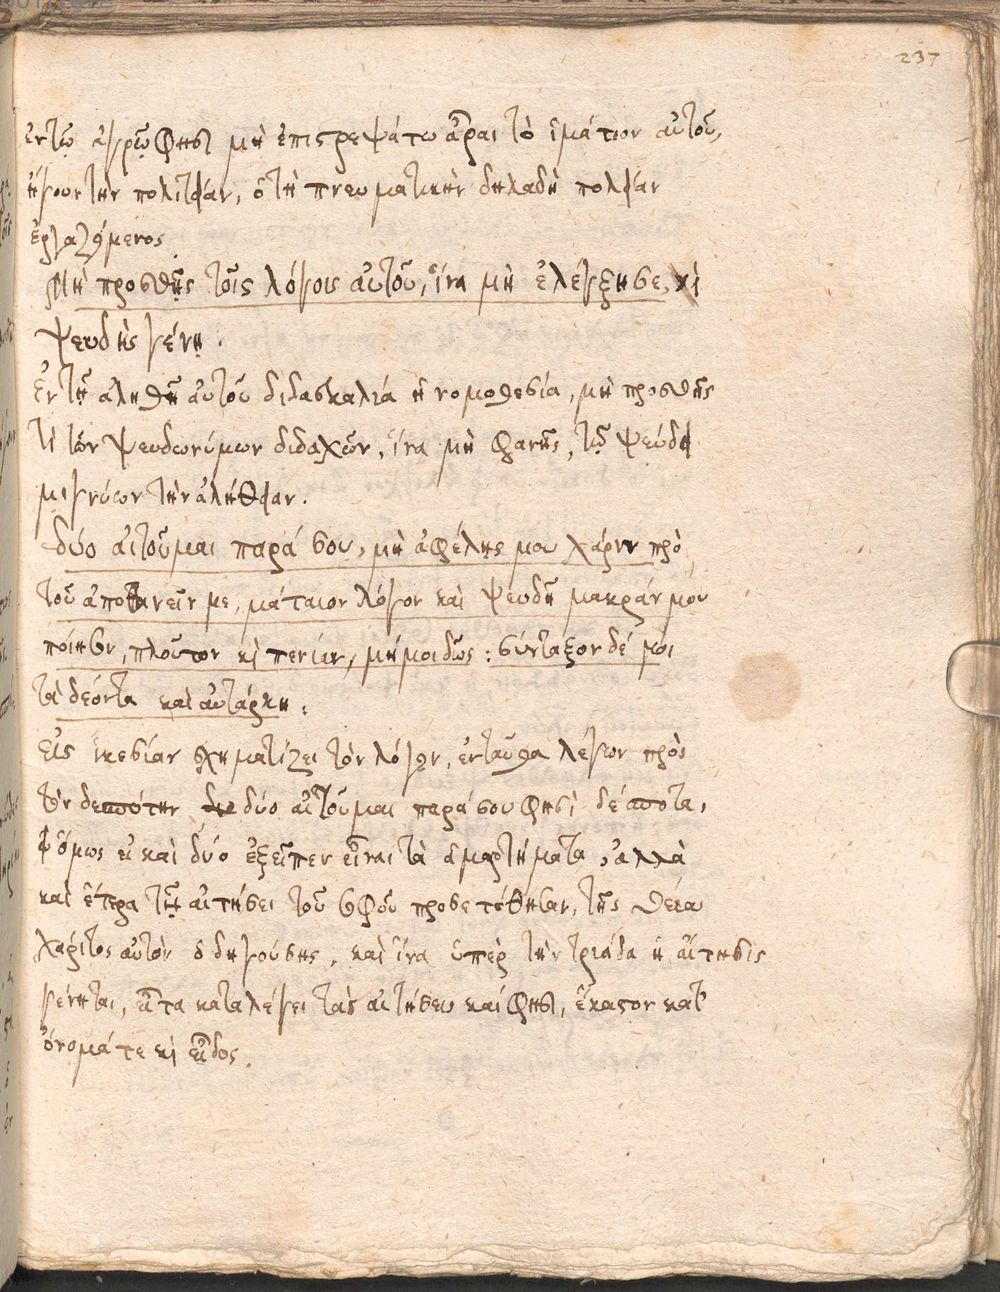 237
ἐν τῷ ἀγρῷ φησὶ μὴ ἐπιστρεψάτω ἆραι τὸ ἱμάτιον αὐτοῦ,
ἤγουν τὴν πολιτείαν, ὁ τὴν πνευματικὴν δηλαδὴ
ἐργαζόμενος
Μὴ προσθῇς τοῖς λόγοις αὐτοῦ, ἵνα μὴ ἐλέγξῃ σε, κὶ
ψευδὴς γένῃ.
Ἐν τῇ ἀληθῇ αὐτοῦ διδασκαλία ἢ νομοθεσία, μὴ προσθῇς
τὶ τῶν ψευδωνύμων διδαχῶν, ἵνα μὴ φανῇς, τῷ ψεύδει
μιγνύων τὴν ἀλήθειαν.
δύο αἰτοῦμαι παρά σου, μὴ ἀφέλῃς μου χάριν πρὸ
τοῦ ἀποθανεῖν με, μάταιον λόγον καὶ ψευδῆ μακράν μου
ποίησον, πλοῦτον κὶ πενίαν, μή μοι δῷς: σύνταξον δέ μοι
τὰ δέοντα καὶ αὐτάρκη.
Εἰς ἱκεσίαν σχηματίζει τὸν λόγον, ἐνταῦθα λέγων πρὸς
τὸν δεσπότην δύο αἰτοῦμαι παρά σου φησὶ δέσποτα,
ὅμως εἰ καὶ δύο ἐξεῖπεν εἶναι τὰ ἁμαρτήματα, ἀλλὰ
καὶ ἕτερα τῇ αἰτήσει τοῦ σοφοῦ προσετέθησαν, τῆς θεία
χάριτος αὐτὸν ὁδηγούσης, καὶ ἵνα ὑπὲρ τὴν τριάδα ἡ αἴτησις
γένηται, εἶτα καταλέγει τὰς αἰτήσεις καί φησι, ἕκαστον κατ'
ὄνομά τε κὶ εἶδος.